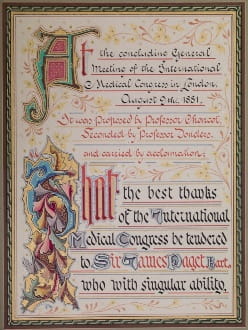 At the concluding General
Meeting of the International
Medical Congress in London,
August 9th. 1881.
It was proposed by Professor Charcot,
Seconded by Professor Donders,
and carried by acclamation,
That the best thanks
of the International
Medical Congress be tendered
to Sir James Paget Bart.
who with singular ability,